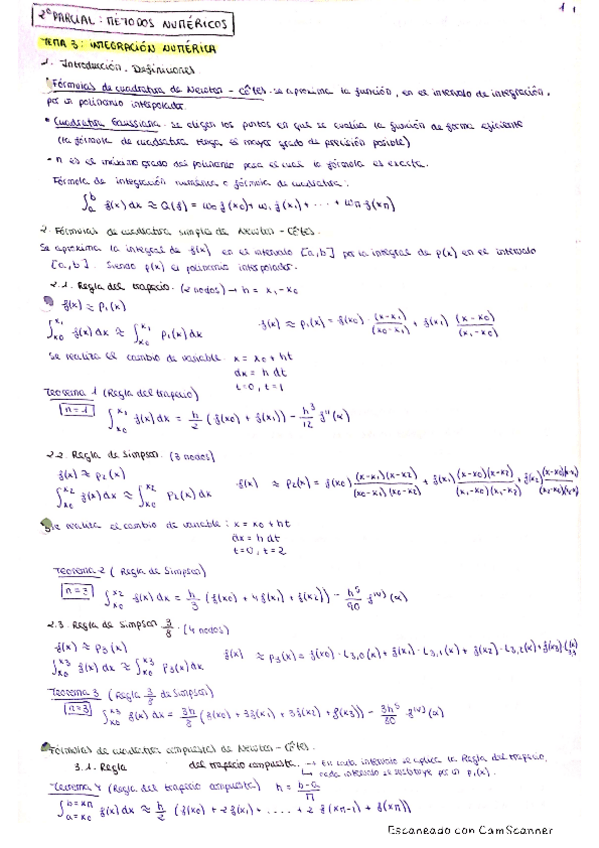 1
2º PARCIAL: MÉTODOS NUMÉRICOS
TEMA 3: INTEGRACIÓN NUMÉRICA
1. Introducción. Definiciones.
Fórmulas de cuadratura de Newton - Côtes: se aproxima la función, en el intervalo de integración,
por un polinomio interpolador.
• Cuadratura Gaussiana: se eligen los puntos en que se evalúa la función de forma eficiente
(la fórmula de cuadratura tenga el mayor grado de precisión posible)
- n es el máximo grado del polinomio para el cual la fórmula es exacta.
Fórmula de integración numérica o fórmula de cuadratura:
∫_a^b f(x) dx ≈ Q(f) = w0 f(x0) + w1 f(x1) + ... + wn f(xn)
2. Fórmulas de cuadratura simple de Newton - Côtes.
Se aproxima la integral de f(x) en el intervalo [a,b] por la integral de p(x) en el intervalo
[a,b]. Siendo p(x) el polinomio interpolador.
2.1. Regla del trapecio. (2 nodos) → h = x1 - x0
f(x) ≈ P1(x)
∫_x0^x1 f(x) dx ≈ ∫_x0^x1 P1(x) dx f(x) ≈ P1(x) = f(x0) · (x-x1)/(x0-x1) + f(x1) (x-x0)/(x1-x0)
Se realiza el cambio de variable: x = x0 + ht
dx = h dt
t=0, t=1
Teorema 1 (Regla del trapecio)
n=1 ∫_x0^x1 f(x) dx = h/2 (f(x0) + f(x1)) - h³/12 f''(α)
2.2. Regla de Simpson. (3 nodos)
f(x) ≈ P2(x)
∫_x0^x2 f(x) dx ≈ ∫_x0^x2 P2(x) dx f(x) ≈ P2(x) = f(x0) (x-x1)(x-x2)/(x0-x1)(x0-x2) + f(x1) (x-x0)(x-x2)/(x1-x0)(x1-x2) + f(x2) (x-x0)(x-x1)/(x2-x0)(x2-x1)
Se realiza el cambio de variable: x = x0 + ht
dx = h dt
t=0, t=2
Teorema 2 (Regla de Simpson)
n=2 ∫_x0^x2 f(x) dx = h/3 (f(x0) + 4f(x1) + f(x2)) - h⁵/90 f^(IV)(α)
2.3. Regla de Simpson 3/8. (4 nodos)
f(x) ≈ P3(x)
∫_x0^x3 f(x) dx ≈ ∫_x0^x3 P3(x) dx f(x) ≈ P3(x) = f(x0) · L3,0(x) + f(x1) · L3,1(x) + f(x2) · L3,2(x) + f(x3)
Teorema 3 (Regla 3/8 de Simpson)
n=3 ∫_x0^x3 f(x) dx = 3h/8 (f(x0) + 3f(x1) + 3f(x2) + f(x3)) - 3h⁵/80 f^(IV)(α)
Fórmulas de cuadratura compuestas de Newton - Côtes.
3.1. Regla del trapecio compuesta. → En cada intervalo se aplica la Regla del trapecio,
cada intervalo se sustituye por un P1(x).
Teorema 4 (Regla del trapecio compuesta) h = b-a/n
∫_a=x0^b=xn f(x) dx ≈ h/2 (f(x0) + 2f(x1) + .... + 2f(xn-1) + f(xn))
Escaneado con CamScanner